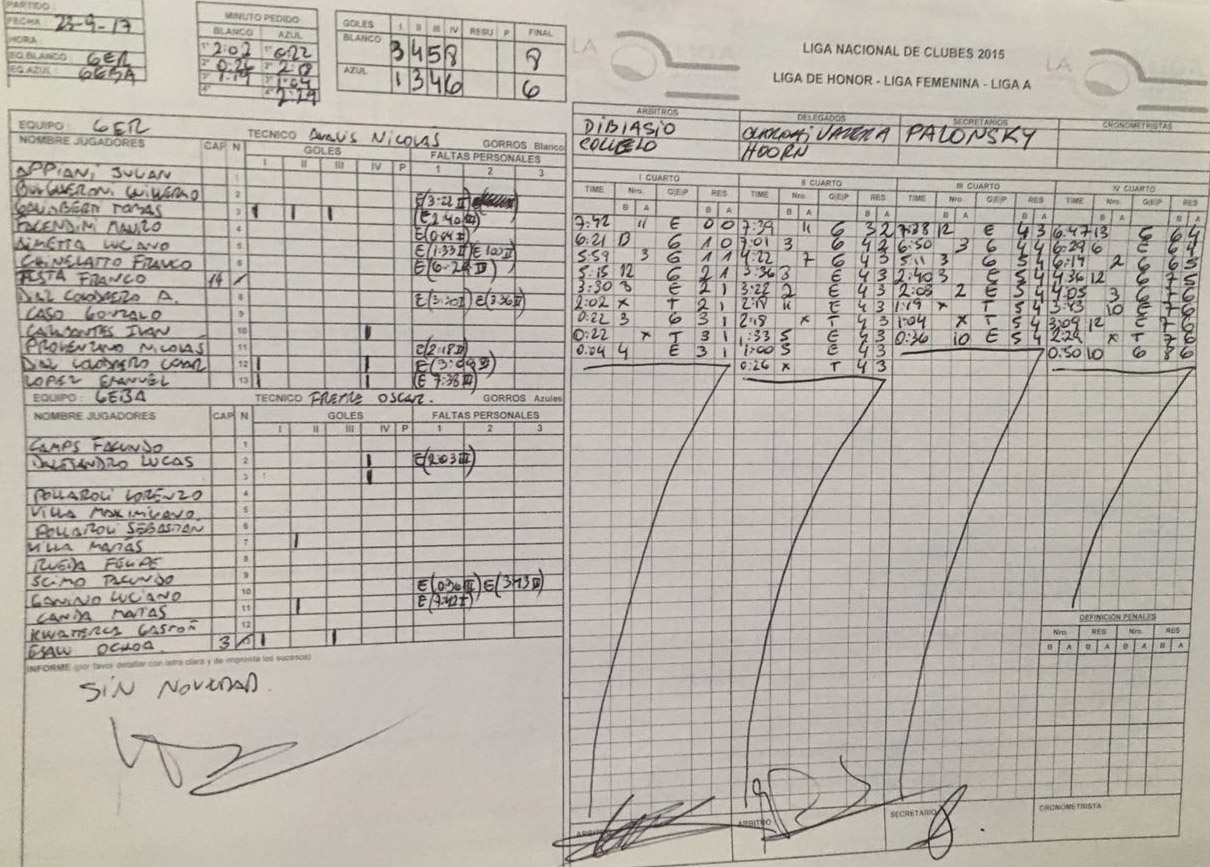 PARTIDO:
FECHA: 23-9-17
HORA:
EQ.BLANCO: GER
EQ.AZUL: GEBA
MINUTO PEDIDO
BLANCO AZUL
1° 2:02 1° 0:22
2° 0:26 2° 2:18
3° 1:19 3° 1:04
4° 4° 2:29
GOLES I II III IV RESU P FINAL
BLANCO 3 4 5 8 8
AZUL 1 3 4 6 6
LIGA NACIONAL DE CLUBES 2015
LIGA DE HONOR - LIGA FEMENINA - LIGA A
ARBITROS DELEGADOS SECRETARIOS CRONOMETRISTAS
DIBIASIO PALONSKY
HOORN
EQUIPO: GER TECNICO NICOLAS GORROS Blanco
NOMBRE JUGADORES CAP N GOLES FALTAS PERSONALES
I II III IV P 1 2 3
APPIANI JULIAN 1
GUILLERMO 2
TOMAS 3 E(3:22 II)
MAURO 4 E(2:40 III)
LUCIANO 5 E(0:04 I)
FRANCO 6 E(1:33 II) E(1:00 II)
TESTA FRANCO 14 E(6:29 IV)
A. 8 E(3:30 I) E(3:36 II)
CASO GONZALO 9
IVAN 10
PROVENZANO NICOLAS 11 E(2:18 II)
12 E(3:09 IV)
LOPEZ EMANUEL 13 E(7:38 III)
EQUIPO: GEBA TECNICO FREIRE OSCAR. GORROS Azules
NOMBRE JUGADORES CAP N GOLES FALTAS PERSONALES
I II III IV P 1 2 3
CAMPS FACUNDO 1
DALESANDRO LUCAS 2 E(2:03 III)
3
POLLAROLI LORENZO 4
VILLA MAXIMILIANO 5
POLLAROLI SEBASTIAN 6
VILLA MATIAS 7
RUEDA FELIPE 8
SCIMO FACUNDO 9
CANINO LUCIANO 10 E(0:36 III) E(3:43 IV)
CANDA MATIAS 11 E(7:42 I)
KWATERCZ GASTON 12
ESAU OCHOA 3
INFORME (por favor detallar con letra clara y de imprenta los sucesos)
SIN NOVEDAD.
I CUARTO
TIME Nro. G/E/P RES
B A B A
7:42 11 E 0 0
6:21 13 G 1 0
5:59 3 G 1 1
5:15 12 G 2 1
3:30 8 E 2 1
2:02 x T 2 1
0:22 3 G 3 1
0:22 x T 3 1
0:04 4 E 3 1
II CUARTO
TIME Nro. G/E/P RES
B A B A
7:39 11 G 3 2
7:01 3 G 4 2
4:22 7 G 4 3
3:36 8 E 4 3
3:22 2 E 4 3
2:18 11 E 4 3
2:18 x T 4 3
1:33 5 E 4 3
1:00 5 E 4 3
0:26 x T 4 3
III CUARTO
TIME Nro. G/E/P RES
B A B A
7:38 12 E 4 3
6:50 3 G 4 4
5:11 3 G 5 4
2:40 3 E 5 4
2:03 2 E 5 4
1:19 x T 5 4
1:04 x T 5 4
0:36 10 E 5 4
IV CUARTO
TIME Nro. G/E/P RES
B A B A
6:47 13 G 6 4
6:29 6 E 6 4
6:19 2 G 6 5
4:36 12 G 7 5
4:05 3 G 7 6
3:43 10 E 7 6
3:09 12 E 7 6
2:29 x T 7 6
0:50 10 G 8 6
DEFINICIÓN PENALES
Nro. RES Nro. RES
B A B A B A B A
ARBITRO
ARBITRO
SECRETARIO
CRONOMETRISTA